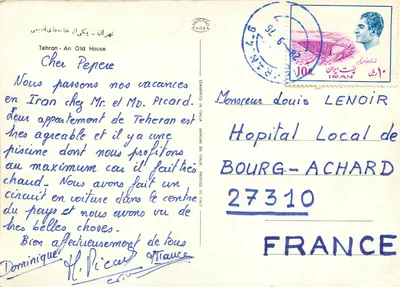 تهران - یکی از خانه‌های قدیمی
Tehran - An Old House
Cher Pepere
Nous passons nos vacances
en Iran chez Mr. et Md. Picard.
Leur appartement de Teheran est
très agreable et il y a une
piscine dont nous profitons
au maximum car il fait très
chaud. Nous avons fait un
circuit en voiture dans le centre
du pays et nous avons vu de
très belles choses.
Bien affectueusement de tous
Dominique
M. Picard
France
10R.
پست ایران
۱۰ ریال
IRAN
Monsieur Louis LENOIR
Hopital Local de
BOURG-ACHARD
27310
FRANCE